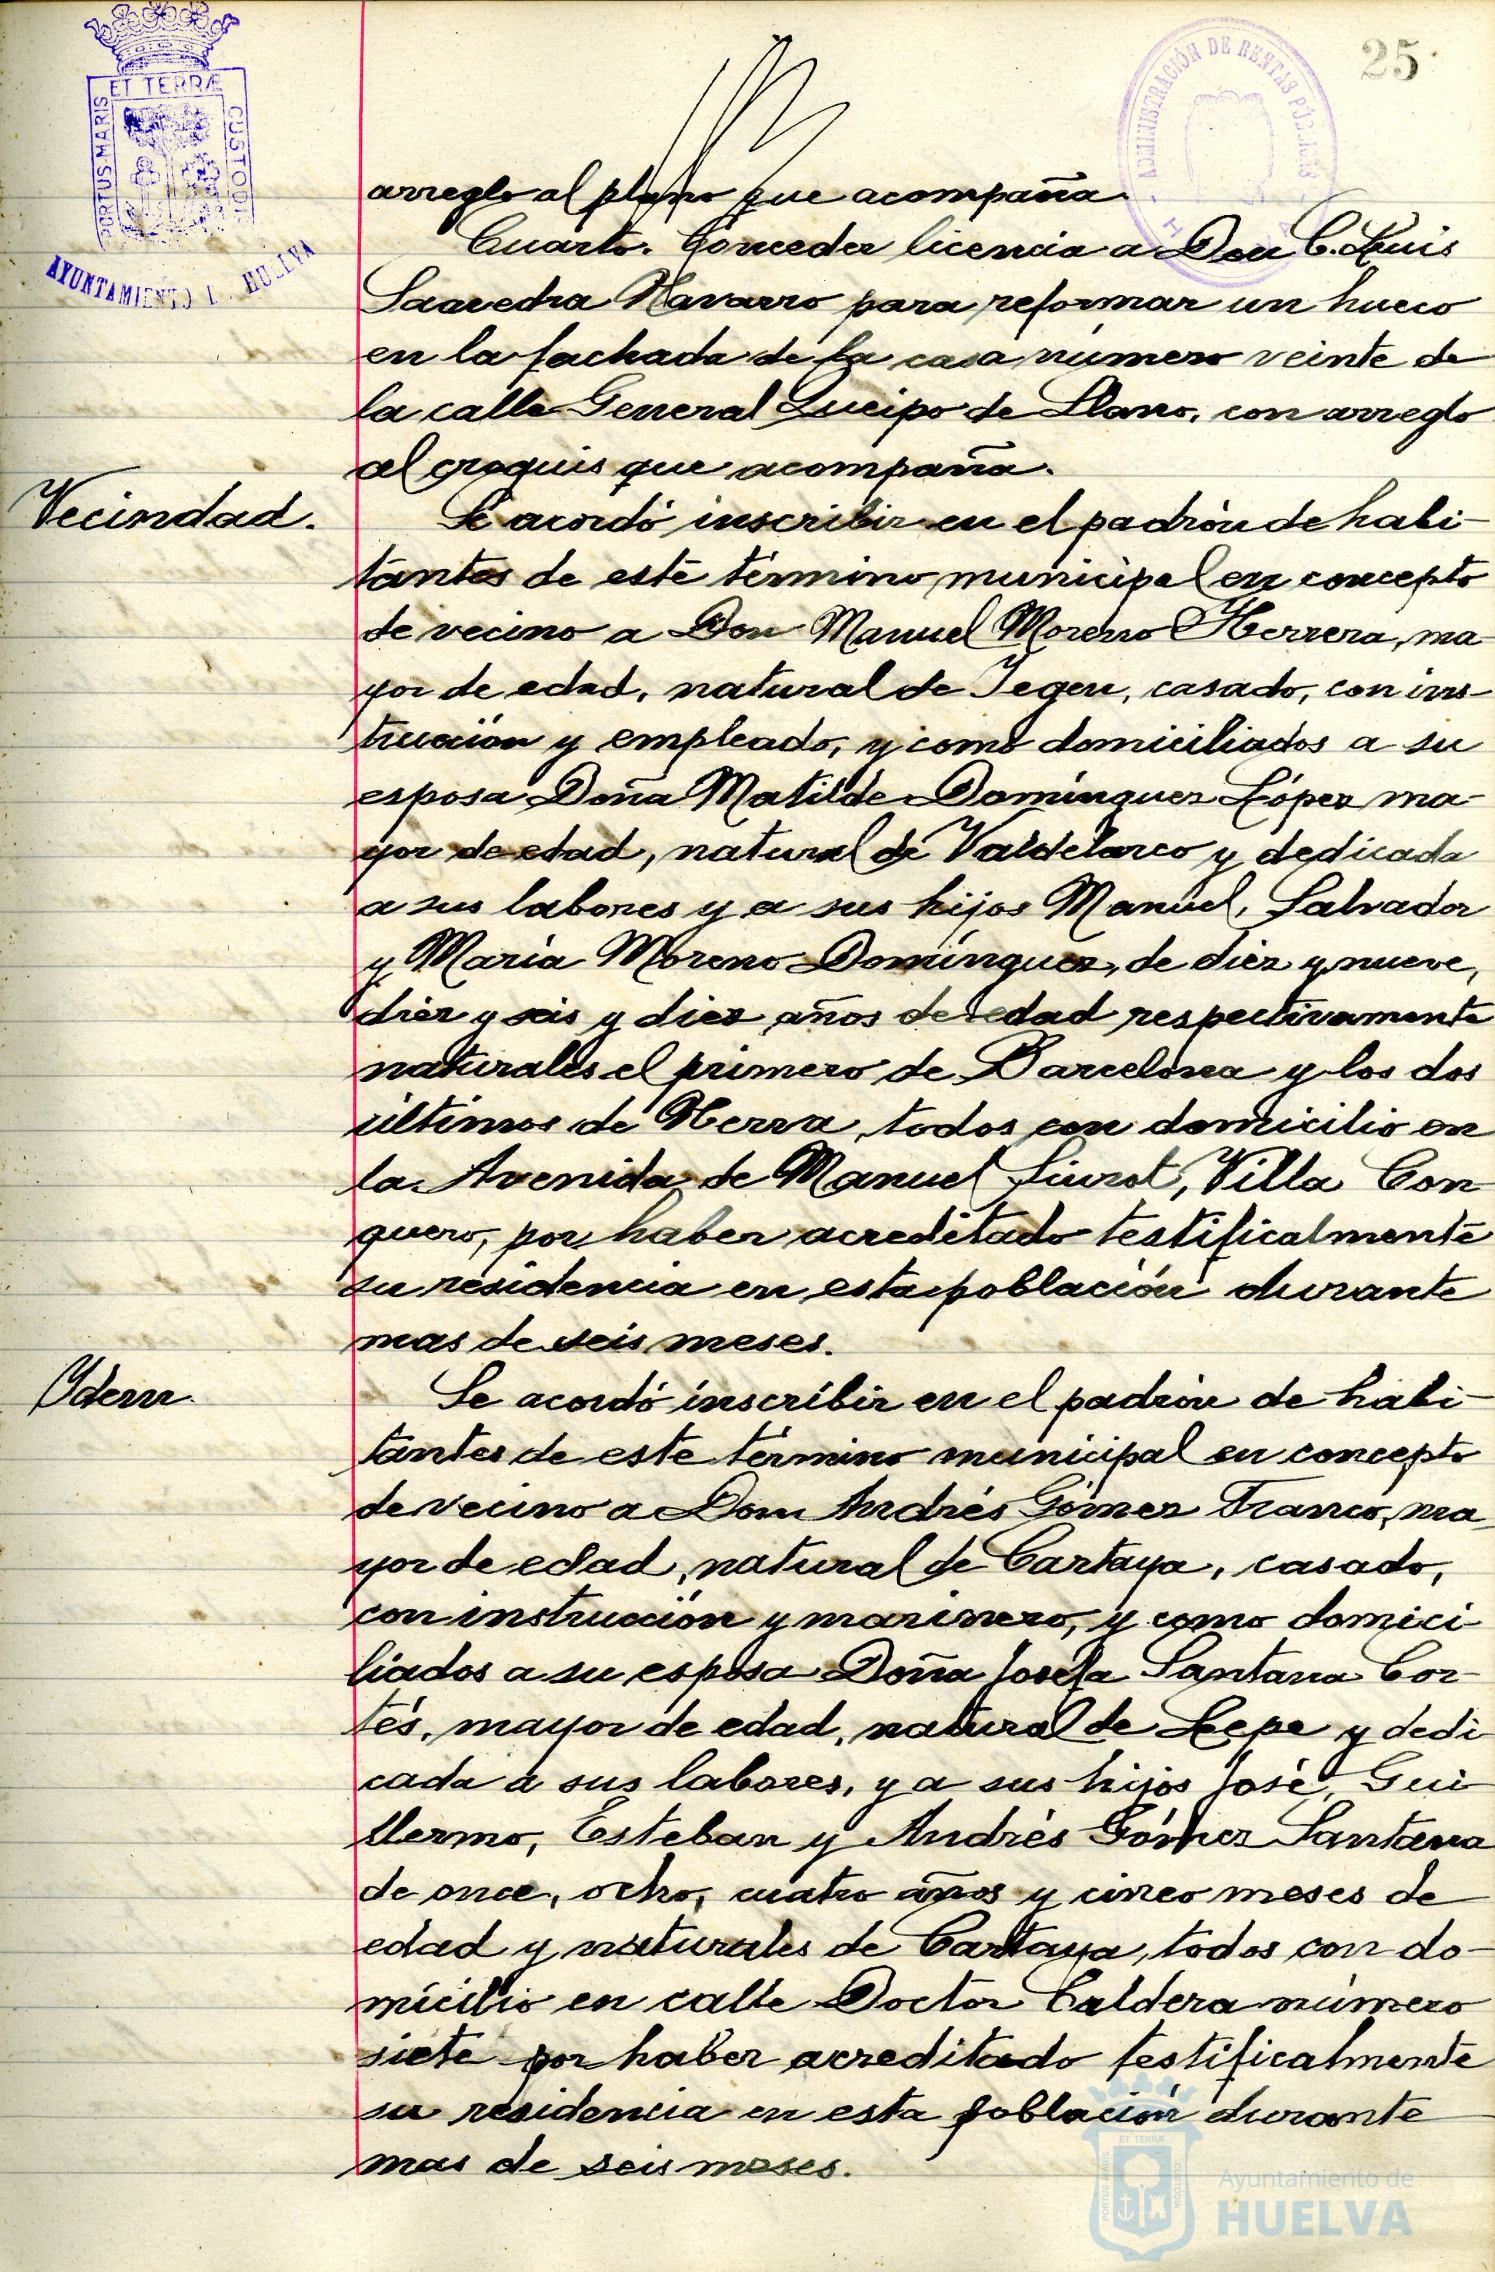 25
ET TERRÆ
PORTUS MARIS
CUSTODIA
AYUNTAMIENTO HUELVA
ADMINISTRACIÓN DE RENTAS PÚBLICAS
arreglo al plano que acompaña.
Cuarto. Conceder licencia a Don C. Luis
Saavedra Navarro para reformar un hueco
en la fachada de la casa número veinte de
la calle General Queipo de Llano, con arreglo
al croquis que acompaña.
Vecindad.
Se acordó inscribir en el padrón de habi-
tantes de este término municipal en concepto
de vecino a Don Manuel Moreno Herrera, ma-
yor de edad, natural de Jegen, casado, con ins-
trucción y empleado, y como domiciliados a su
esposa Doña Matilde Domínguez López ma-
yor de edad, natural de Valdelarco y dedicada
a sus labores y a sus hijos Manuel, Salvador
y María Moreno Domínguez, de diez y nueve,
diez y seis y diez años de edad respectivamente
naturales el primero de Barcelona y los dos
últimos de Nerva, todos con domicilio en
la Avenida de Manuel Siurot, Villa Con
quero, por haber acreditado testificalmente
su residencia en esta población durante
mas de seis meses.
Ydem.
Se acordó inscribir en el padrón de habi-
tantes de este término municipal en concepto
de vecino a Don Andrés Gómez Franco, ma-
yor de edad, natural de Cartaya, casado,
con instrucción y marinero, y como domici
liados a su esposa Doña Josefa Santana Cor-
tés, mayor de edad, natural de Lepe y dedi
cada a sus labores, y a sus hijos José, Gui
llermo, Esteban y Andrés Gómez Santana
de once, ocho, cuatro años y cinco meses de
edad y naturales de Cartaya, todos con do-
micilio en calle Doctor Caldera número
siete por haber acreditado testificalmente
su residencia en esta población durante
mas de seis meses.
ET TERRÆ
PORTUS MARIS
CUSTODIA
Ayuntamiento de
HUELVA